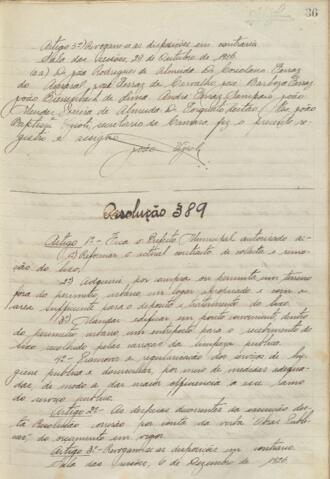 36
Artigo 5º Revogam-se as disposições em contrario
Sala das Sessões, 29 de Outubro de 1926.
(aa) Dr. João Rodrigues de Almeida, Dr. Coriolano Ferraz
do Amaral, José Ferraz de Carvalho, José Barboza Ferraz,
João Bierrenbach de Lima, André Ferraz Sampaio, João
Alves Corrêa de Almeida, Dr. Torquato Leitão. Eu, João
secretario da Camara, fez o presente re-
gistro e assigno
João
Resolução 389
Artigo 1º- Fica o Prefeito Municipal autorizado a:-
1º) Reformar o actual contracto de coleta e remo-
ção do lixo;
2º) Adquirir, por compra ou permuta, um terreno
fora do perimetro urbano em logar apropriado e com a
area sufficiente para o deposito e tratamento do lixo.
3º) Mandar edificar em ponto conveniente, dentro
do perimetro urbano, um entreposto para o recebimento do
lixo recolhido pelas carroças da limpeza publica.
4º- Promover a regularização dos serviços de hy-
giene publica e domiciliar, por meio de medidas adequa-
das, de modo a dar maior efficiencia a esse ramo
do serviço publico.
Artigo 2º- As despesas decorrentes da execução des-
ta Resolução correrão por conta da verba "Obras Publi-
cas", do orçamento em vigor.
Artigo 3º- Revogam-se as disposições em contrario.
Sala das Sessões, 6 de Dezembro de 1926.